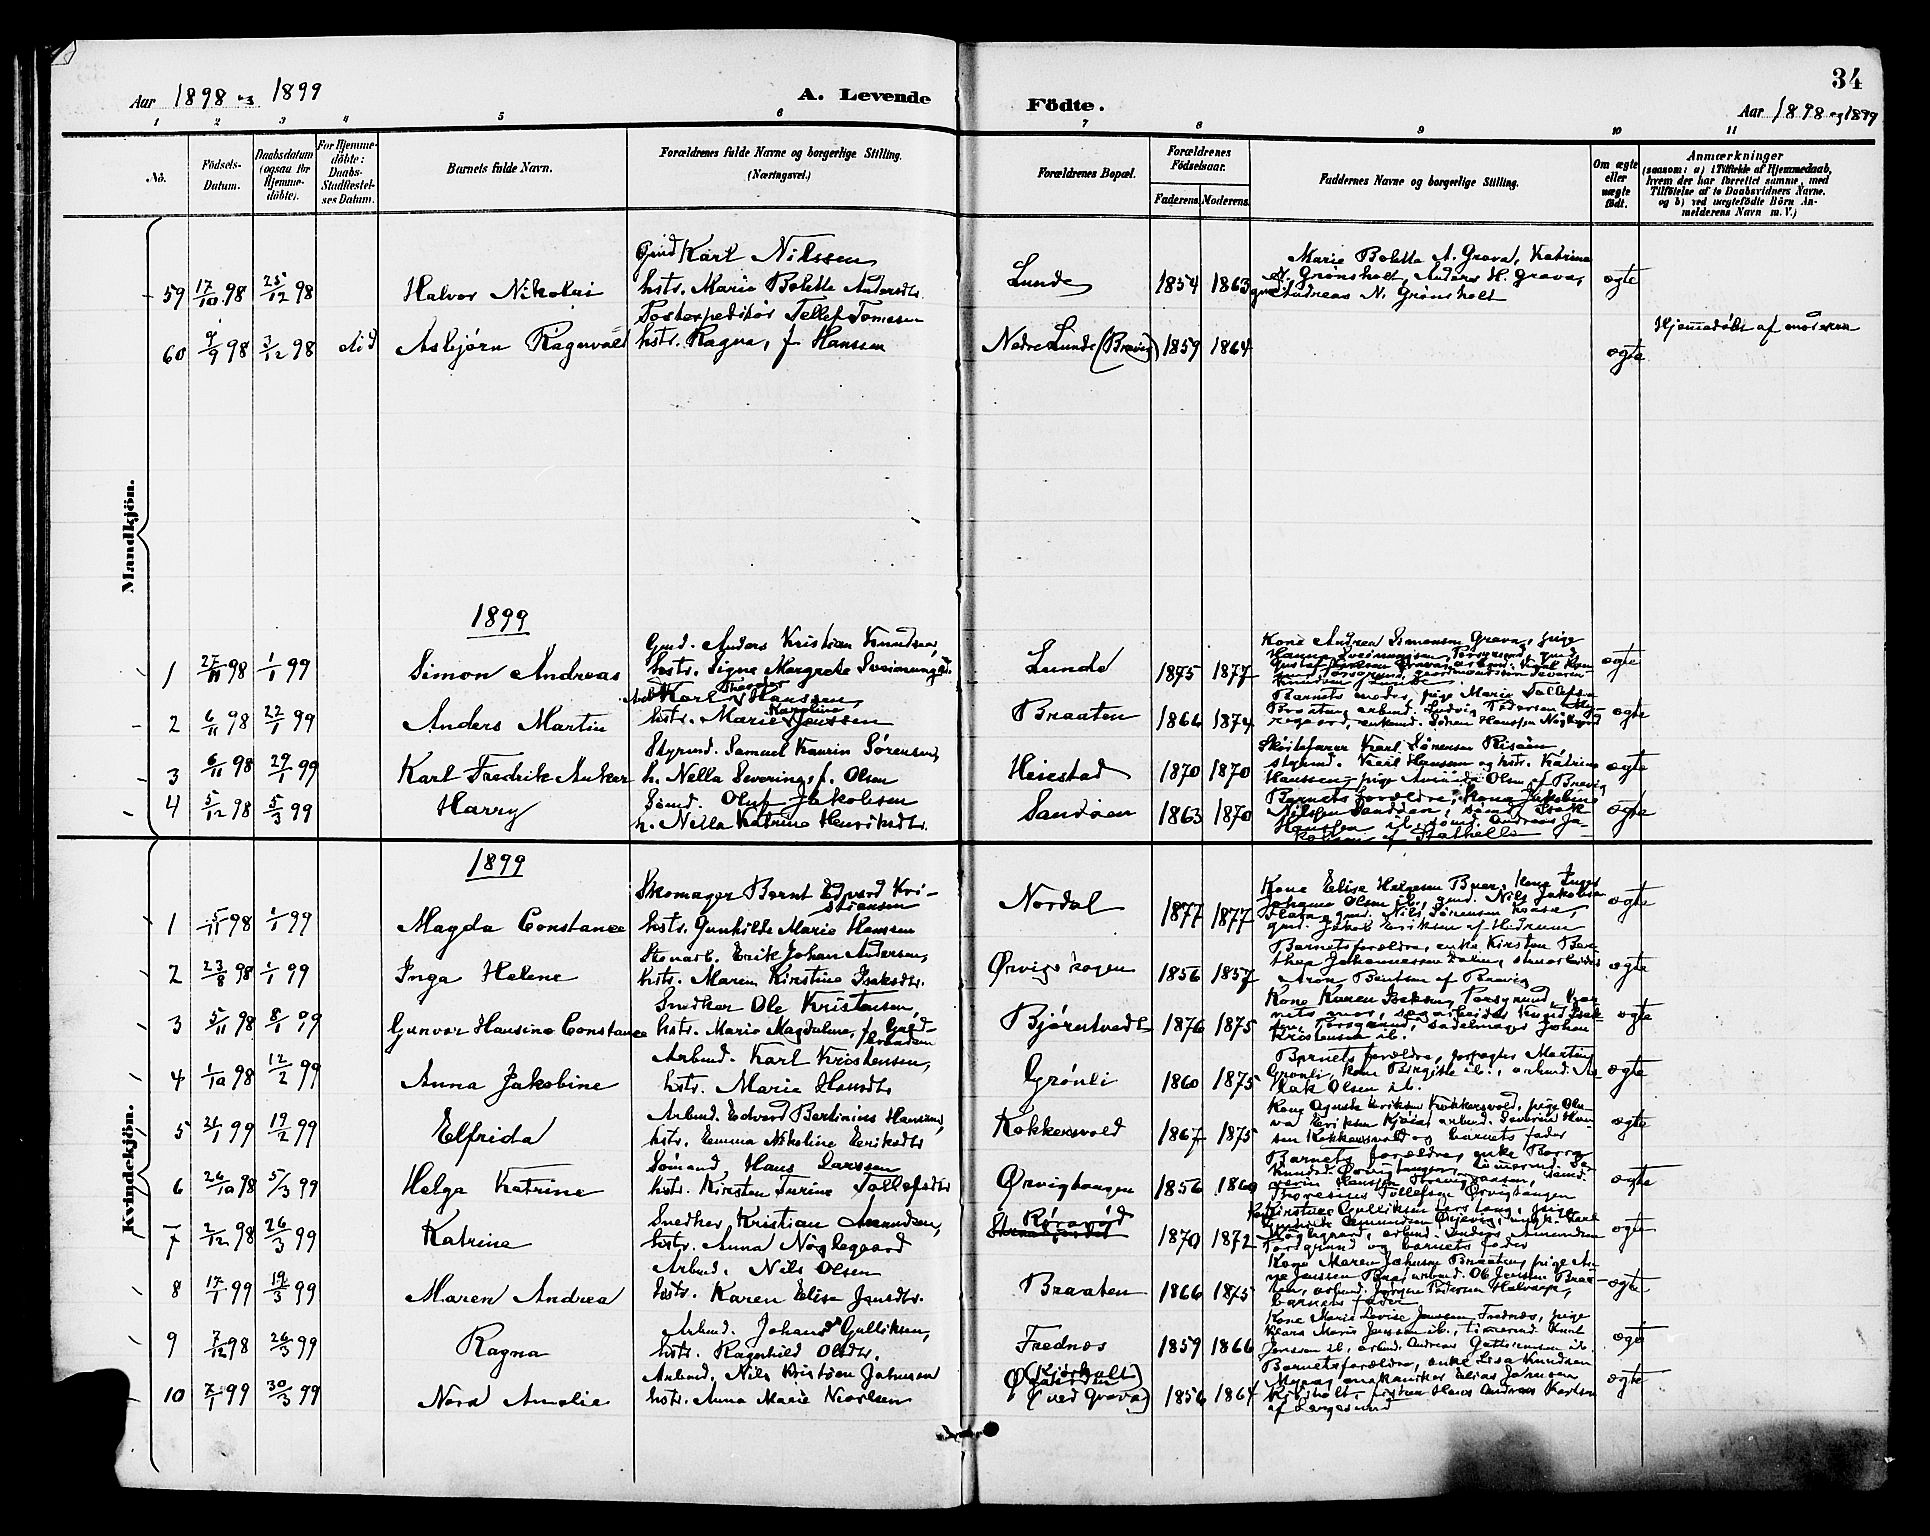 34
Aar 1898 og 1899
A. Levende Födte.
Aar 1898 og 1899
1 2 3 4 5 6 7 8 9 10 11
No.
Födsels-Datum.
Daabsdatum (ogsaa for Hjemmedöbte).
For Hjemmedöbte: Daabs-Stadfæstelses Datum.
Barnets fulde Navn.
Forældrenes fulde Navne og borgerlige Stilling. (Næringsvei.)
Forældrenes Bopæl.
Forældrenes Födselsaar.
Faderens. Moderens.
Faddernes Navne og borgerlige Stilling.
Om ægte eller uægte födt.
Anmærkninger
(saasom: a) i Tilfælde af Hjemmedaab,
hvem der har forrettet samme, med
Tilföielse af to Daabsvidners Navne.
og b) ved uægtefödte Börn Anmelderens Navn m. V.)
Mandkjön.
59 17/10 98 25/12 98 Halvor Nikolai
Gmd Karl Nilssen
hstr. Marie Bolette Andersdtr.
Lunde 1854 1863
Marie Bolette A. Grava, Katrine
A. Grønsholt, Anders H. Grava,
gmd Andreas N. Grønsholt
ægte
60 9/9 98 3/12 98 did Asbjørn Ragnvald
Postexpeditør Tellef Tomesen
hstr. Ragna, f Hanssen
Nedre Lunde (Brevig) 1859 1864
ægte
Hjemmedøbt af moderen
1899
1 27/11 98 1/1 99 Simon Andreas
Gmd. Anders Kristian Knudsen,
hstr. Signe Margrete Sveinungsdtr.
Lunde 1875 1877
Kone Andrea Simonsen Grava, pige
Hanna Sveinungsen, Porsgrund, gmd
ægte
2 6/11 98 22/1 99 Anders Martin
Arb Karl Theodor Hanssen,
hstr. Marie Karoline Jenssen
Braaten 1866 1874
Barnets moder, pige Marie Tollefsen
Braaten, arbmd. Ludvig Pedersen
ægte
3 6/11 98 29/1 99 Karl Fredrik Anker
Styrmd. Samuel Laurin Sørensen,
h. Nella Severine, f. Olsen
Heiestad 1870 1870
Skøitefører Karl Sørensen Risøen,
styrmd. Karl Hansen og hstr. Katrine
Hanssen, pige Amanda Olsen af Brevig
ægte
4 5/12 98 5/3 99 Harry
Sømd. Oluf Jakobsen
h. Nella Katrine Henriksdtr.
Sandøen 1863 1870
Barnets forældre, Kone Jakobine
Nilssen Sandøen, sømd. Isak
Hanssen ib., sømd. Andreas Jakobsen af Stathelle
ægte
Kvindekjön.
1899
1 5/11 98 1/1 99 Magda Constance
Skomager Bernt Edvard Kristiansen
hstr. Gunhilde Marie Hanssen
Nordal 1877 1877
Kone Elise Helgesen Buer, Kone Inger
Johanne Olsen ib., gmd. Nils Jakobsen
Flata, gmd. Nils Sørensen Kaasa,
gmd. Jakob Eriksen af Hedrum
ægte
2 23/8 98 1/1 99 Inga Helene
Stenarb. Erik Johan Andersen,
hstr. Maren Kirstine Isaksdtr.
Ørvigskogen 1856 1857
Barnets forældre, enke Kirsten Barthea Johannessen Dalen, stenarbeider
Aron Berntsen af Brevig
ægte
3 5/11 98 8/1 99 Gunvor Hansine Constance
Snedker Ole Kristensen,
hstr. Marie Magdalene, f. Guldbrandsen
Bjørntvedt 1876 1875
Kone Karen Isaksen, Porsgrund, barnets mor, sagarbeider Knud Isaksen, Porsgrund, sadelmager Johan
Kristensen ib.
ægte
4 1/10 98 12/2 99 Anna Jakobine
Arbmd. Karl Kristensen,
hstr. Marie Hansdtr
Grønli 1860 1875
Barnets forældre, forpagter Martin
Grønli, kone Birgitte ib., arbmd. Aslak Olsen ib.
ægte
5 21/1 99 19/2 99 Elfrida
Arbmd. Edvard Bertinius Hansen,
hstr. Emma Nikoline Eriksdtr
Kokkersvold 1867 1875
Kone Agnete Eriksen Kokkersvold, pige Oleva Eriksen Kjøia, arbmd. Severin Hansen Kokkersvold og barnets fader
ægte
6 26/10 98 5/3 99 Helga Katrine
Sømand, Hans Larssen
hstr. Kirsten Turine Tollefsdtr
Ørvigtangen 1856 1860
Thoresius Tollefsen Ørvigtangen
ægte
7 2/12 98 26/3 99 Katrine
Snedker Kristian Amundsen,
hstr. Anna Nøglegaard
Røravød 1870 1872
Porsgrund og barnets fader
ægte
8 17/1 99 19/3 99 Maren Andrea
Arbmd. Nils Olsen
hstr. Karen Elise Jensdtr.
Braaten 1866 1875
Kone Maren Johnsen Braaten, pige
barnets fader
ægte
9 7/12 98 26/3 99 Ragna
Arbmd. Johans Gulliksen,
hstr. Ragnhild Olsdtr.
Frednes 1859 1866
Kone Marie Lovise Jensen, Frednes, pige
Klara Marie Jensen ib., tømmermd. Knut
Jenssen ib., arbmd. Andreas Guttormsen ib.
ægte
10 7/1 99 30/3 99 Nora Amalie
Arbmd. Nils Kristian Johnsen
hstr. Anna Marie Nielsen
(Kjørholt)
(ved Grava) 1856 1864
Barnets forældre, enke Lisa Knudsen
Myra, mekaniker Elias Johnsen
Kjørholt, Hans Andreas Karlsen
af Langesund
ægte